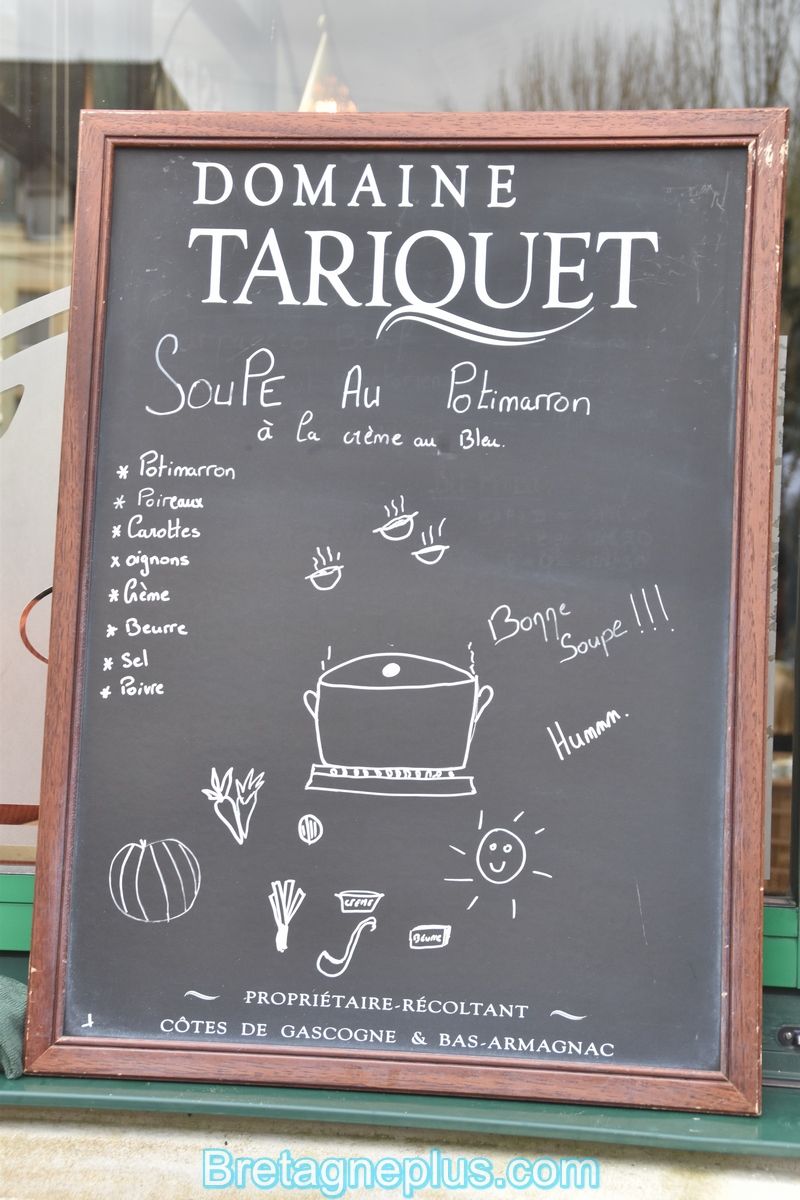 DOMAINE
TARIQUET
SOUPE AU Potimarron
à la crème au Bleu.
* Potimarron
* Poireaux
* Carottes
x oignons
* Crème
* Beurre
* Sel
* Poivre
Bonne
Soupe !!!
Hummm.
CREME
Beurre
PROPRIÉTAIRE-RÉCOLTANT
CÔTES DE GASCOGNE & BAS-ARMAGNAC
Bretagneplus.com